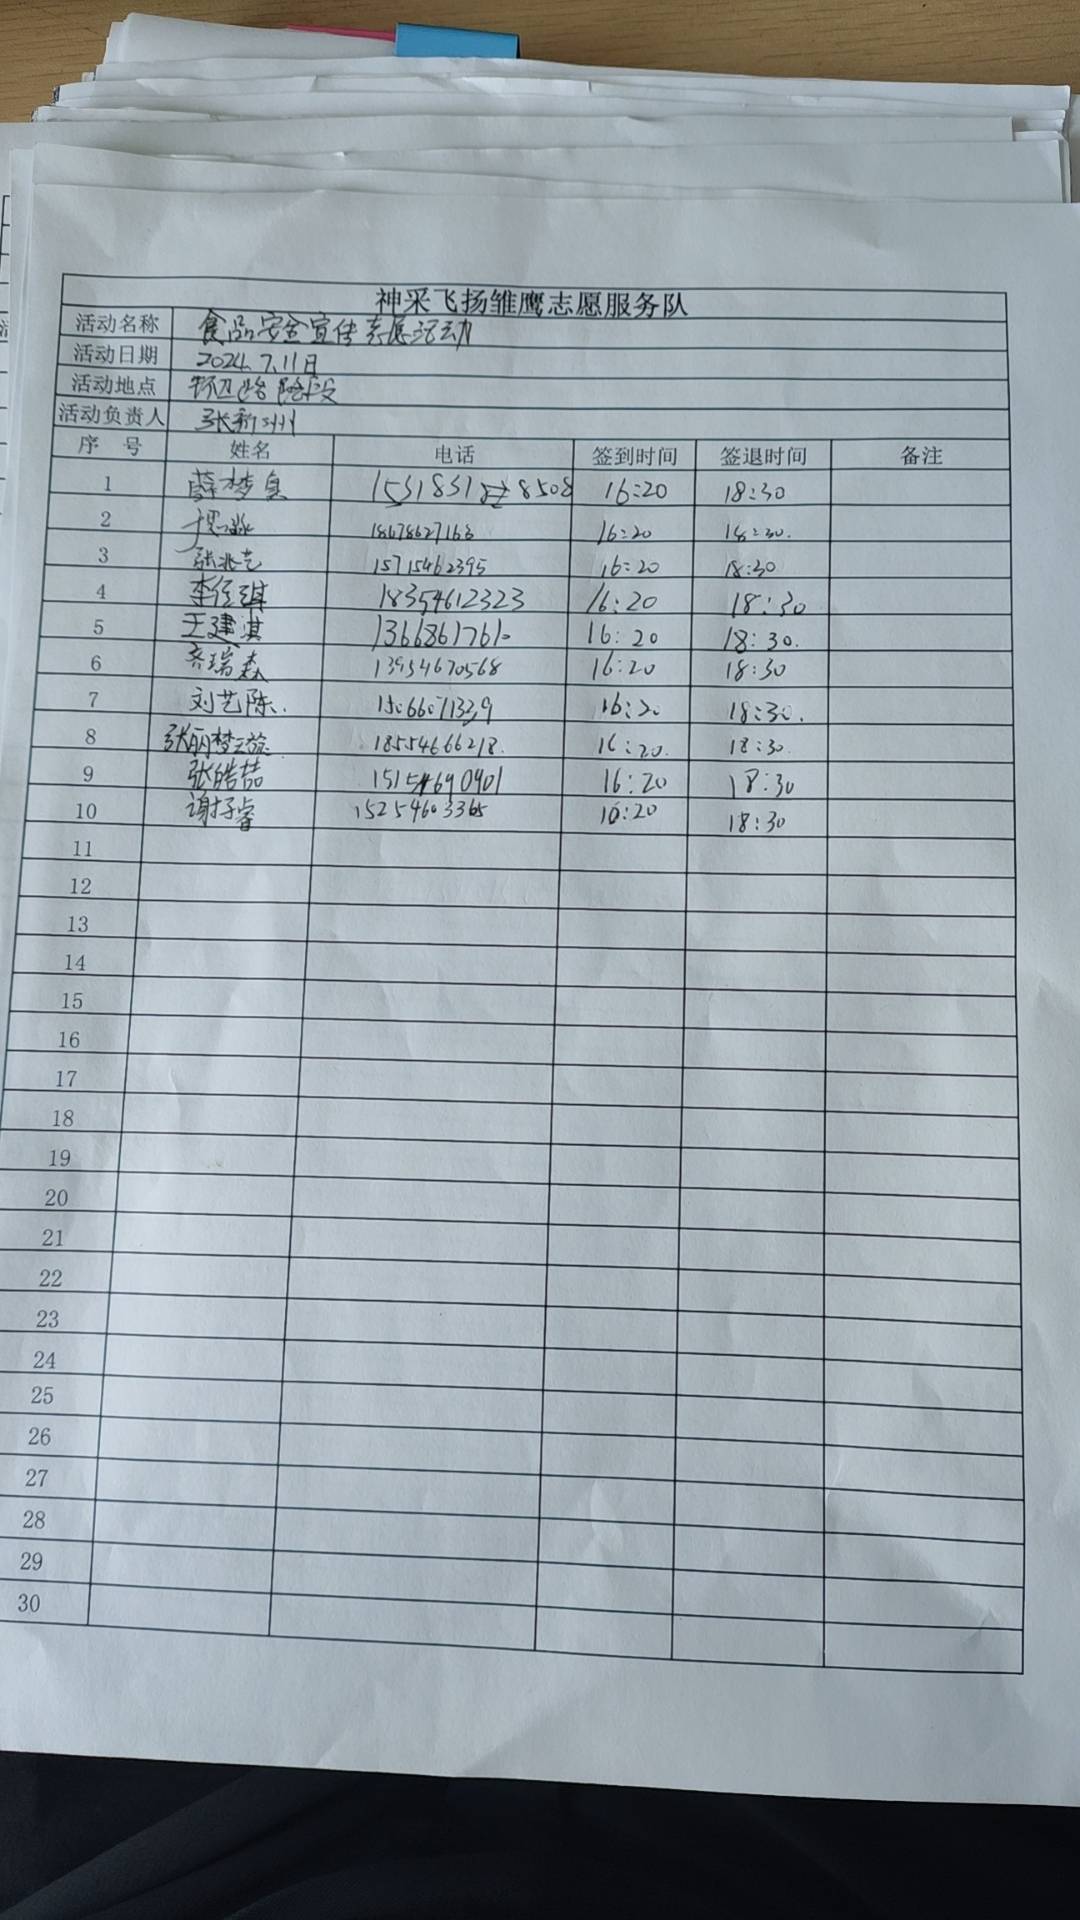 神采飞扬雏鹰志愿服务队
活动名称 食品安全宣传志愿活动
活动日期 2024.7.11日
活动地点 路段
活动负责人 张新州
序 号 姓名 电话 签到时间 签退时间 备注
1 薛梦 15318318508 16:20 18:30
2 18678627163 16:20 18:30.
3 张兆艺 15715462395 16:20 18:30
4 李 琪 18354612323 16:20 18:30
5 王建淇 1366861761 16:20 18:30.
6 齐瑞森 13954670568 16:20 18:30
7 刘艺陈. 15066071339 16:20 18:30.
8 张丽梦璇 18554666218. 16:20. 18:30.
9 张皓喆 15154690901 16:20 18:30
10 谢抒睿 15254603365 16:20 18:30
11
12
13
14
15
16
17
18
19
20
21
22
23
24
25
26
27
28
29
30